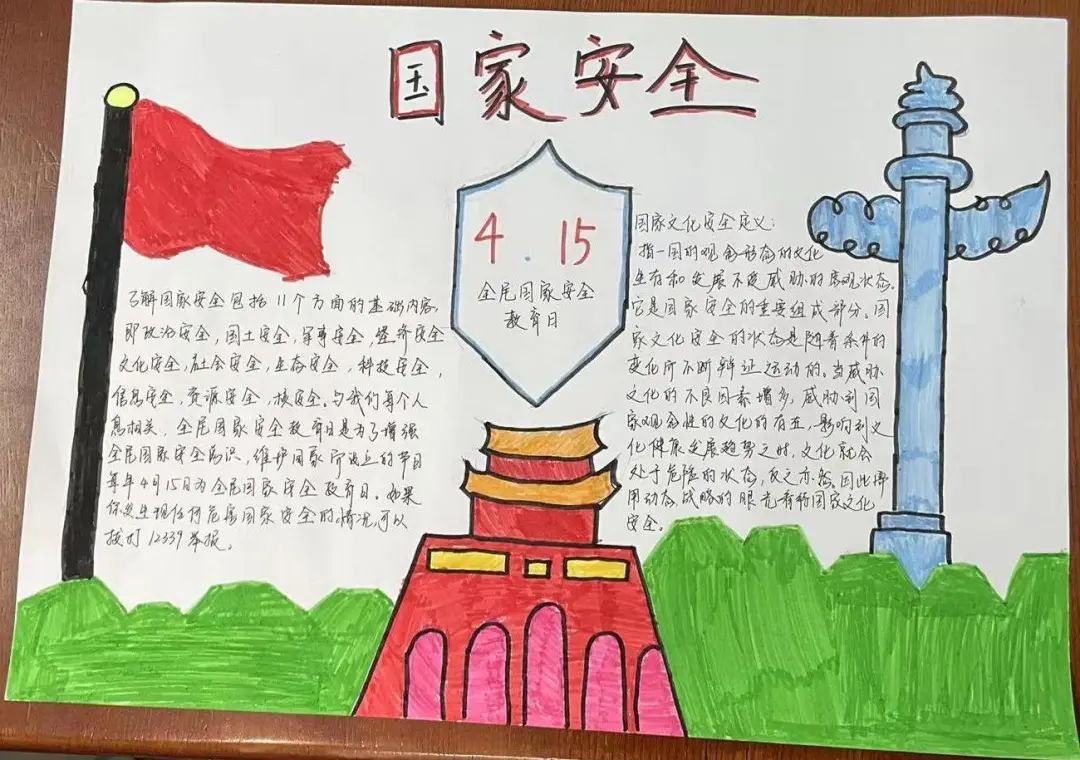 国家安全
4.15
全民国家安全
教育日
了解国家安全包括11个方面的基础内容,
即政治安全,国土安全,军事安全,经济安全
文化安全,社会安全,生态安全,科技安全,
信息安全,资源安全,核安全。与我们每个人
息相关,全民国家安全教育日是为了增强
全民国家安全意识,维护国家所设立的节日
每年4月15日为全民国家安全教育日。如果
你发现任何危害国家安全的情况,可以
拨打12339举报。
国家文化安全定义:
指一国的观念形态的文化
生存和发展不受威胁的客观状态。
它是国家安全的重要组成部分。国
家文化安全的状态是随着条件的
变化而不断辩证运动的。当威胁
文化的不良因素增多,威胁到国
家观念性的文化的存在,影响到文
化健康发展趋势之时,文化就会
处于危险的状态,反之亦然。因此得
用动态战略的眼光看待国家文化
安全。